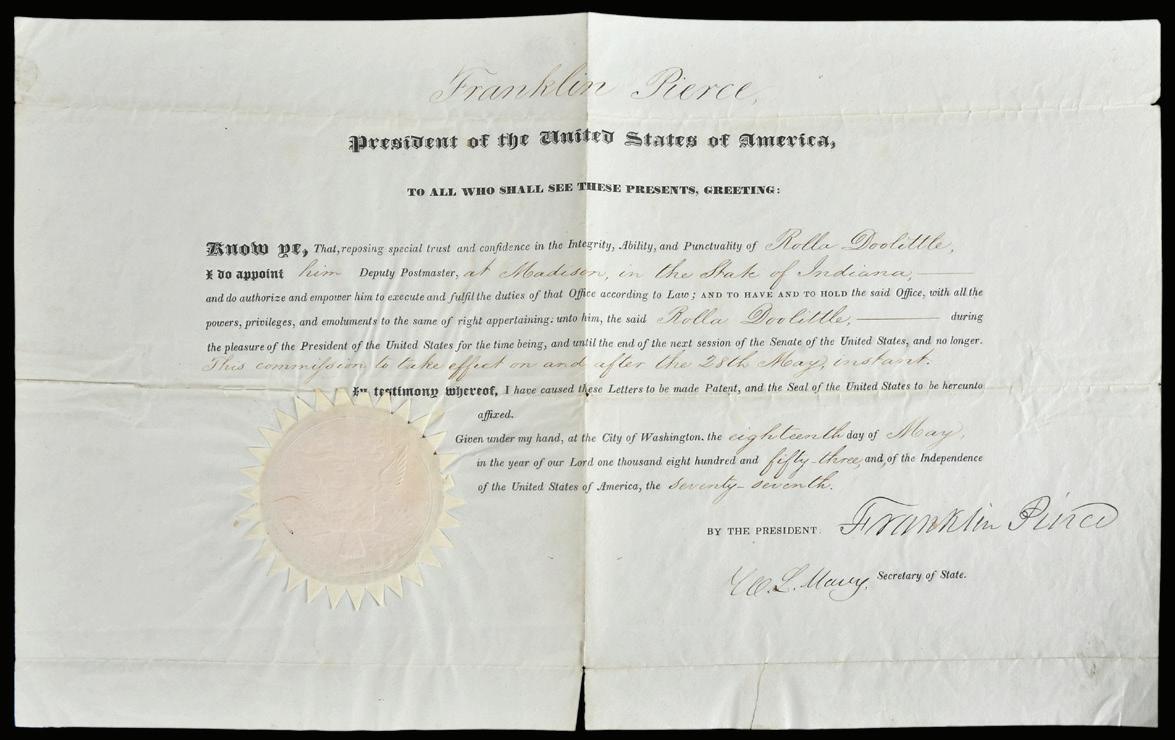 Franklin Pierce,
President of the United States of America,
TO ALL WHO SHALL SEE THESE PRESENTS, GREETING:
Know ye, That, reposing special trust and confidence in the Integrity, Ability, and Punctuality of Rolla Doolittle,
I do appoint him Deputy Postmaster, at Madison, in the State of Indiana,
and do authorize and empower him to execute and fulfil the duties of that Office according to Law; AND TO HAVE AND TO HOLD the said Office, with all the
powers, privileges, and emoluments to the same of right appertaining: unto him, the said Rolla Doolittle, during
the pleasure of the President of the United States for the time being, and until the end of the next session of the Senate of the United States, and no longer.
This commission to take effect on and after the 28th May, instant.
In testimony whereof, I have caused these Letters to be made Patent, and the Seal of the United States to be hereunto
affixed.
Given under my hand, at the City of Washington. the eighteenth day of May,
in the year of our Lord one thousand eight hundred and fifty-three, and, of the Independence
of the United States of America, the seventy-seventh.
BY THE PRESIDENT: Franklin Pierce
W. L. Marcy, Secretary of State.